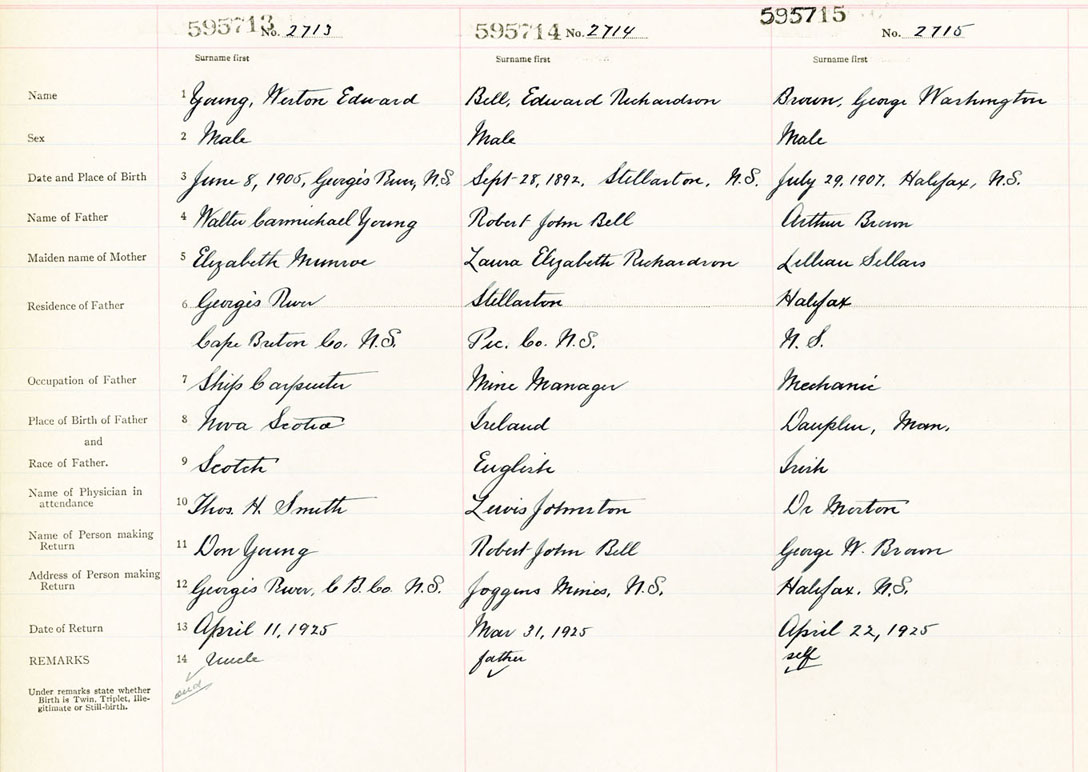 595713 No. 2713 595714 No. 2714 595715 No. 2715
Surname first Surname first Surname first
Name 1 Young, Weston Edward Bell, Edward Richardson Brown, George Washington
Sex 2 Male Male Male
Date and Place of Birth 3 June 8, 1905, George's River, N.S. Sept 28, 1892. Stellarton, N.S. July 29, 1907. Halifax, N.S.
Name of Father 4 Walter Carmichael Young Robert John Bell Arthur Brown
Maiden name of Mother 5 Elizabeth Munroe Laura Elizabeth Richardson Lillian Sellars
Residence of Father 6 George's River Stellarton Halifax
Cape Breton Co. N.S. Pic. Co. N.S. N.S.
Occupation of Father 7 Ship Carpenter Mine Manager Mechanic
Place of Birth of Father 8 Nova Scotia Ireland Dauphin, Man.
and
Race of Father. 9 Scotch English Irish
Name of Physician in
attendance 10 Thos. H. Smith Lewis Johnston Dr Morton
Name of Person making
Return 11 Don Young Robert John Bell George W. Brown
Address of Person making
Return 12 George's River, C.B. Co. N.S. Joggins Mines, N.S. Halifax, N.S.
Date of Return 13 April 11, 1925 Mar 31, 1925 April 22, 1925
REMARKS 14 Uncle father self
and
Under remarks state whether
Birth is Twin, Triplet, Ille-
gitimate or Still-birth.